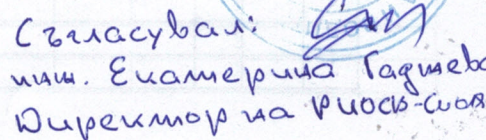 Съгласувал:
инж. Екатерина Гаджева
Директор на РИОСВ-Смолян